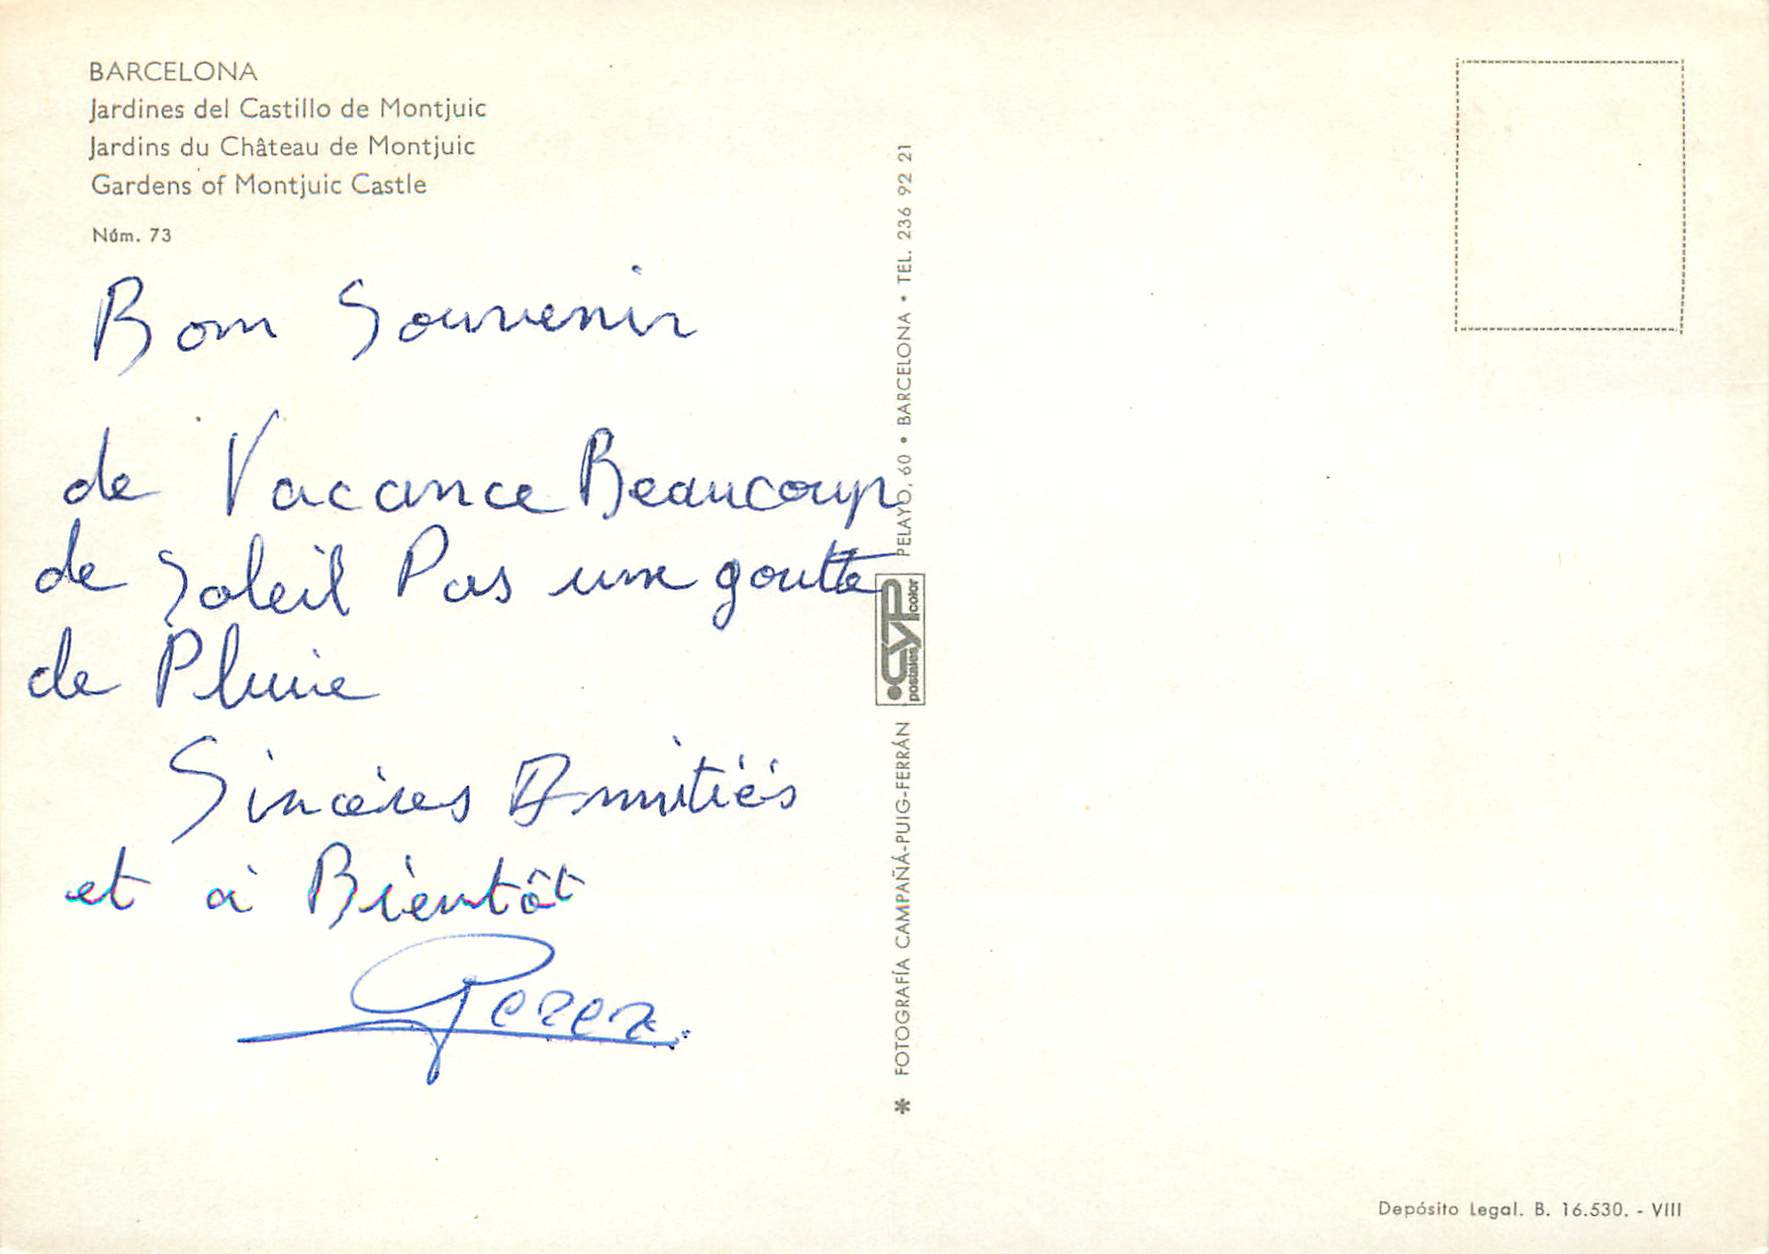 BARCELONA
Jardines del Castillo de Montjuic
Jardins du Château de Montjuic
Gardens of Montjuic Castle
Núm. 73
Bon Souvenir
de Vacance Beaucoup
de Soleil Pas une goutte
de Pluie
Sincères Amitiés
et à Bientôt
Perez.
* FOTOGRAFÍA CAMPAÑÁ-PUIG-FERRÁN
CYP
postales color
PELAYO, 60 • BARCELONA • TEL. 236 92 21
Depósito Legal. B. 16.530. - VIII